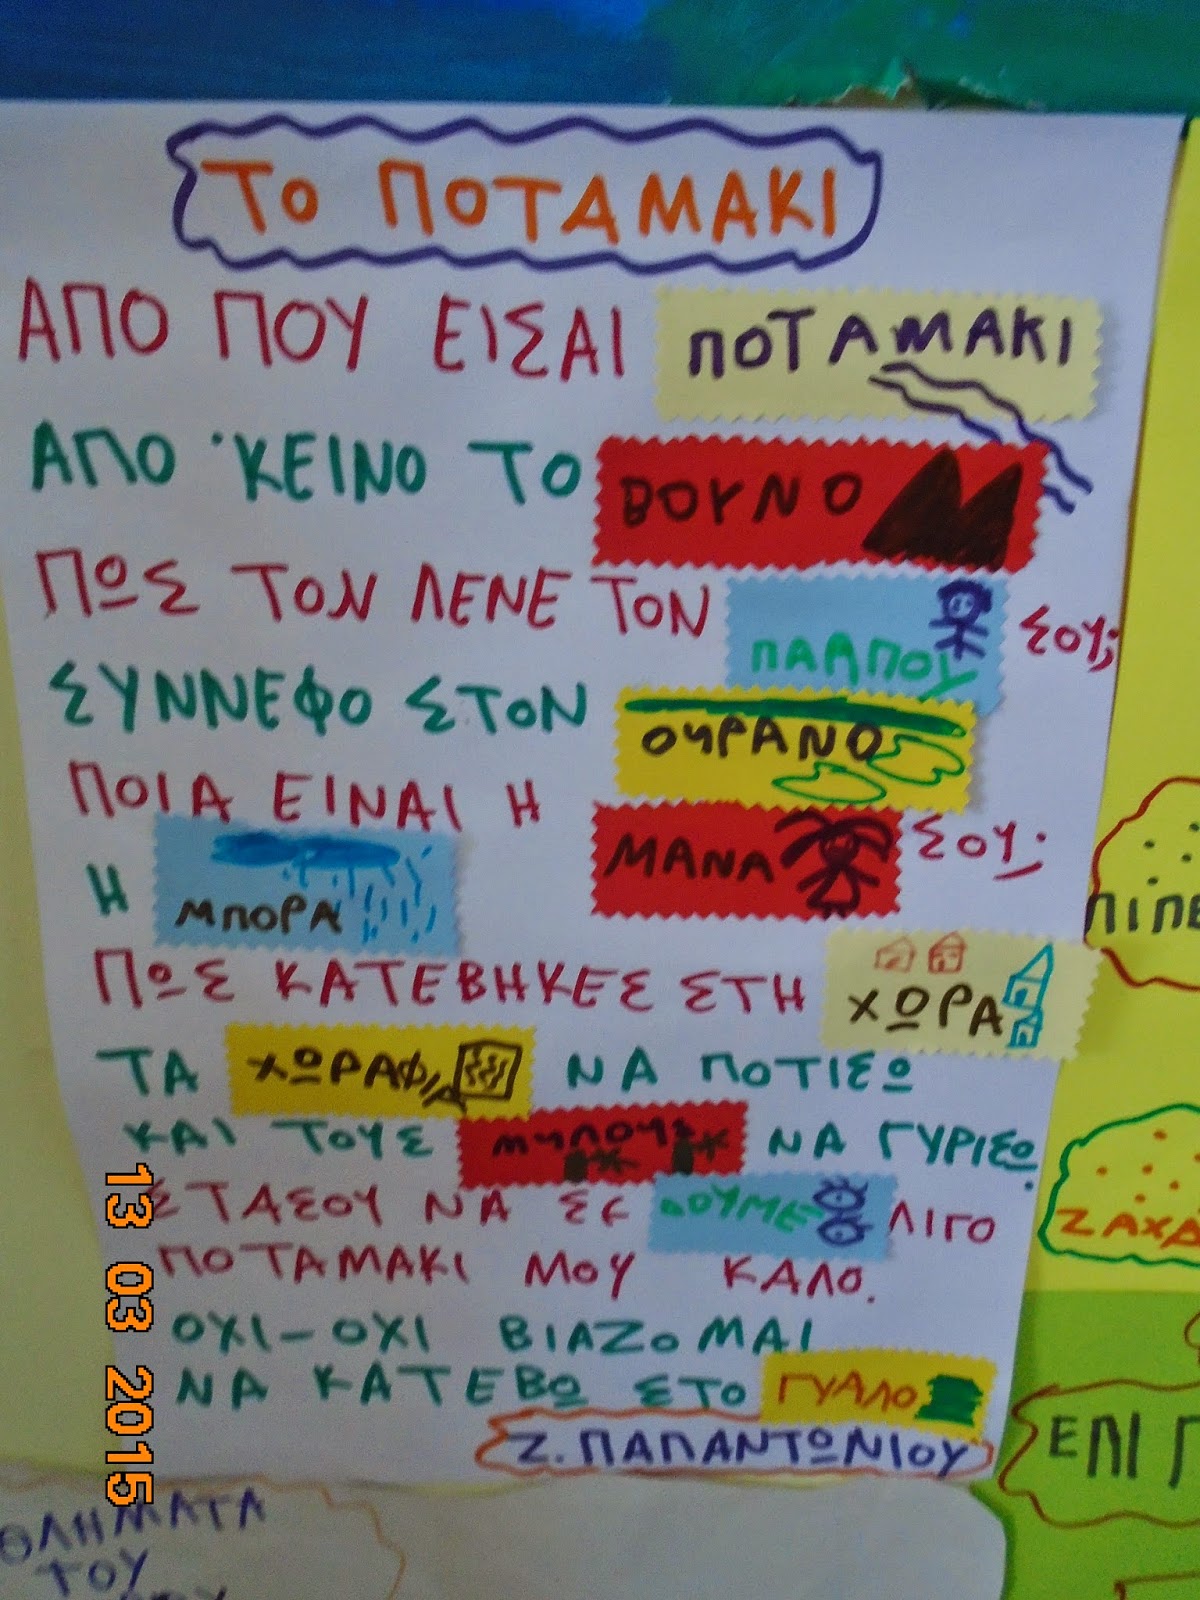 ΤΟ ΠΟΤΑΜΑΚΙ
ΑΠΟ ΠΟΥ ΕΙΣΑΙ ΠΟΤΑΜΑΚΙ
ΑΠΟ 'ΚΕΙΝΟ ΤΟ ΒΟΥΝΟ
ΠΩΣ ΤΟΝ ΛΕΝΕ ΤΟΝ ΠΑΠΠΟΥ ΣΟΥ;
ΣΥΝΝΕΦΟ ΣΤΟΝ ΟΥΡΑΝΟ
ΠΟΙΑ ΕΙΝΑΙ Η ΜΑΝΑ ΣΟΥ;
Η ΜΠΟΡΑ
ΠΩΣ ΚΑΤΕΒΗΚΕΣ ΣΤΗ ΧΩΡΑ
ΤΑ ΧΩΡΑΦΙΑ ΝΑ ΠΟΤΙΣΩ
ΚΑΙ ΤΟΥΣ ΜΥΛΟΥΣ ΝΑ ΓΥΡΙΣΩ.
ΣΤΑΣΟΥ ΝΑ ΣΕ ΔΟΥΜΕ ΛΙΓΟ
ΠΟΤΑΜΑΚΙ ΜΟΥ ΚΑΛΟ.
ΟΧΙ-ΟΧΙ ΒΙΑΖΟΜΑΙ
ΝΑ ΚΑΤΕΒΩ ΣΤΟ ΓΥΑΛΟ
Ζ. ΠΑΠΑΝΤΩΝΙΟΥ
13 03 2015
ΠΙΠΕ
ΖΑΧΑ
ΕΠΙ Π
ΘΛΗΜΑΤΑ
ΤΟΥ